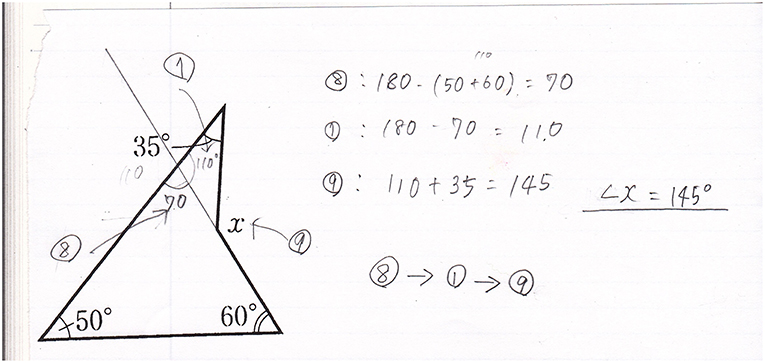 110
⑧ : 180 - (50 + 60) = 70
① : 180 - 70 = 110
⑨ : 110 + 35 = 145
∠x = 145°
⑧ → ① → ⑨
①
35°
110
110°
70
x
⑨
⑧
50°
60°